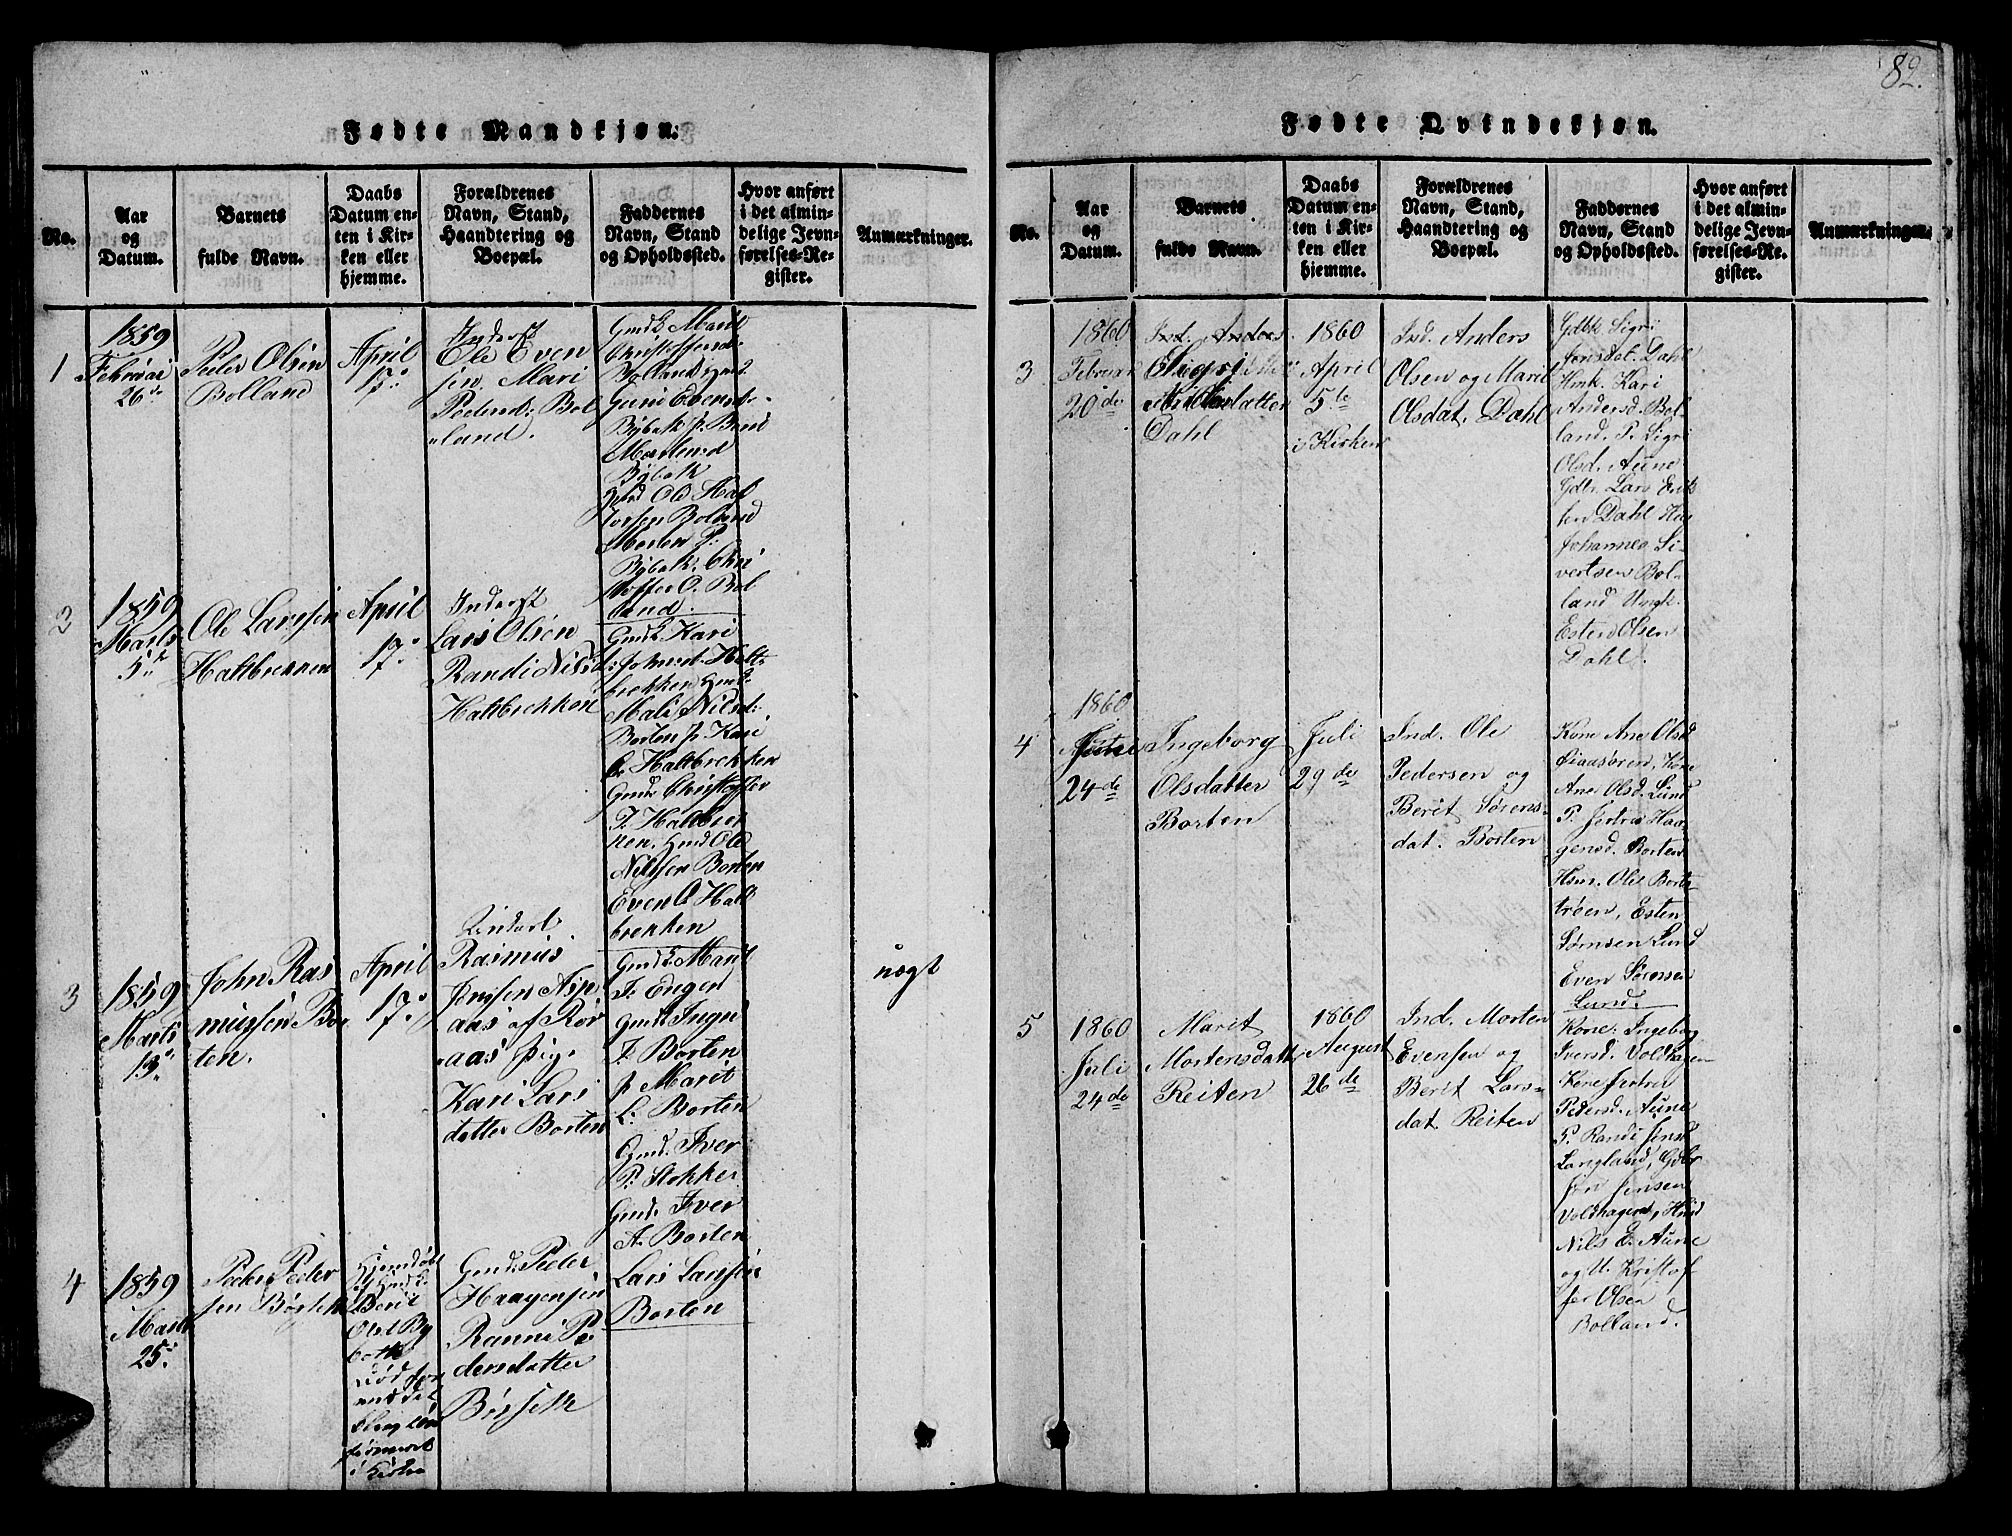 82.
Fødte Mandkjøn.
No.
Aar
og
Datum.
Barnets
fulde Navn.
Daabs
Datum en-
ten i Kir-
ken eller
hjemme.
Forældrenes
Navn, Stand,
Haandtering og
Boepæl.
Faddernes
Navn, Stand
og Opholdssted.
Hvor anført
i det almin-
delige Jevn-
førelses-Re-
gister.
Anmærkninger.
1
1859
Februar
26
Peder Olsen
Bolland
April
17.
Inderst
Ole Even
sen, Mari
Pedersd: Bol
land.
Gmdk Marit
Christoffersd:
Bolland, Gmdk
Guru Evensd:
Bybak p. Beret
Mortensd
Bybak
Gmd Ole Hal
vorsen Bolland
Morten P:
Bybak. Chri
stoffer O. Bol
land.
2
1859
Marts
5
Ole Larssen
Haltbrekken
April
17.
Inderst
Lars Olsen
Randi Nilsd
Haltbrekken
Gmdk. Kari
Johnsd. Halt
brekken Gmdk.
Mali Nilsd:
Borten p. Kari
E. Haltbrekken
Gmd: Christoffer
J. Haltbrek
ken. Gmd Ole
Nilssen Borten
Even O Halt
brekken
3
1859
Marts
13.
John Ras
mussen Bor
ten.
April
17.
Inderst
Rasmus
Jenssen Asp
aas af Rør
aas Pig.
Kari Lars
datter Borten
Gmdk. Marit
J. Engen
Gmdk. Ingn
J. Borten
p Marit
L. Borten
Gmd. Iver
P. Stokke
Gmd. Iver
A. Borten
Lars Larssen
Borten
uægt
4
1859
Marts
25.
Peder Peder
sen Børseth
Hjemdøbt
af Gmdk.
Berit
Olsd By
bak
død for
end de
Gmd. Peder
Haagensen
Ranni Pe
dersdatter
Børseth
i Kirke
Fødte Qvindekjøn.
No.
Aar
og
Datum.
Barnets
fulde Navn.
Daabs
Datum en-
ten i Kir-
ken eller
hjemme.
Forældrenes
Navn, Stand,
Haandtering og
Boepæl.
Faddernes
Navn, Stand
og Opholdssted.
Hvor anført
i det almin-
delige Jevn-
førelses-Re-
gister.
Anmærkninger.
3
1860
Februar
20de
Ind. Anders
Sigri
Andersdatter
Dahl
1860
April
5te
i Kirken
Ind. Anders
Olsen og Marit
Olsdat. Dahl
Gdbk Sigri
Jonsdat. Dahl
Hmk. Kari
Andersd. Bol-
land. P. Sigri
Olsd. Aune
Gdbr. Lars Erik
sen Dahl Hus
Johannes Si-
vertsen Bol-
land Ungk.
Esten Olsen
Dahl.
4
1860
24de
Ingeborg
Olsdatter
Borten
Juli
29de
Ind. Ole
Pedersen og
Berit Sørens-
dat. Borten
Kone Ane Olsd
Øiaasøren, Kone
Ane Olsd. Lund
P. Jertru Haa-
gensd. Borten
Hsm. Ole Borts-
trøen, Esten
Sørnsen Lund
Even Sørensen
Lund.
5
1860
Juli
24de
Marit
Mortensdatt
Reiten
1860
August
26de
Ind. Morten
Evensen og
Berit Lars-
dat. Reiten
Kone: Ingebog
Iversd. Voldhagen
Kone Jertru
Pedersd. Aune
P. Randi Jensd
Langland, Gdbr
Jon Jensen
Voldhagen, Husd
Nils E. Aune
og U. Kristof
fer Olsen
Bolland.